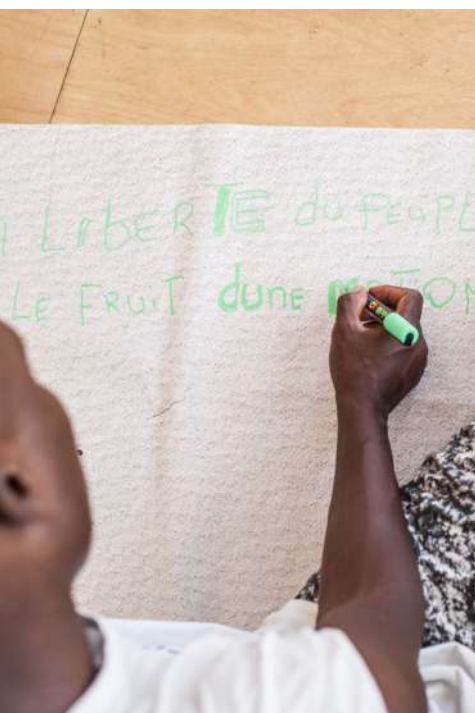 LIbERTE du PEUPL
LE FRUIT dune